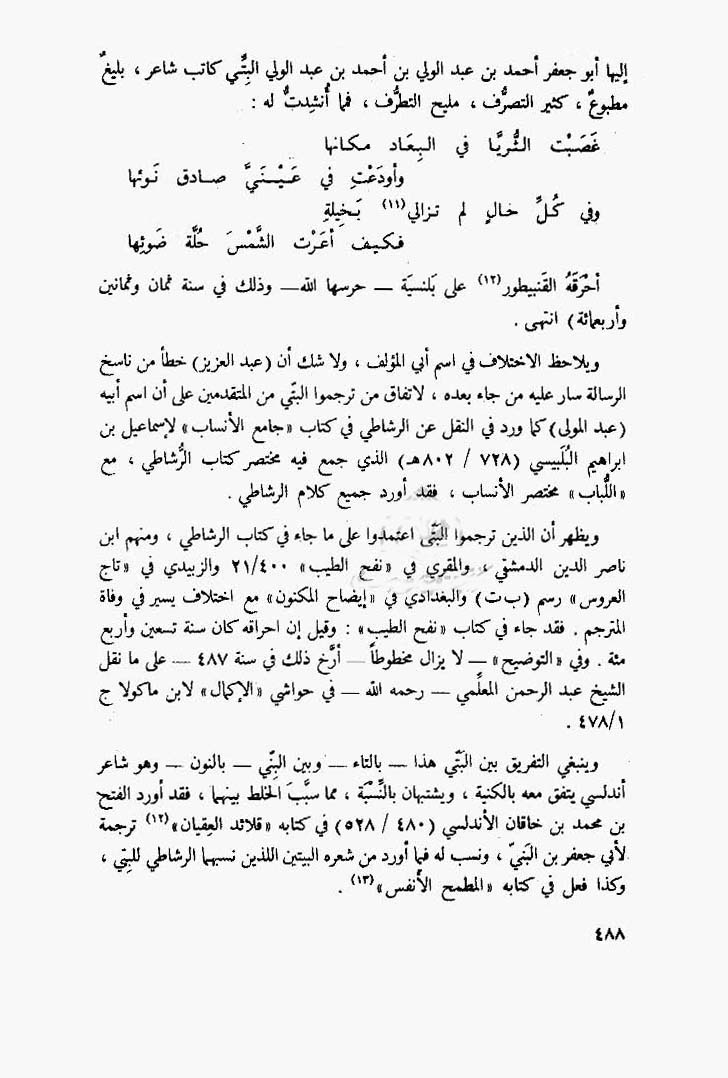 إليها أبو جعفر أحمد بن عبد الولي بن أحمد بن عبد الولي البِتِّي كاتب شاعر ، بليغٌ
مطبوعٌ ، كثير التصرُّف ، مليح التطرُّف ، فما أُنشِدتُّ له :
غَصَبْت الثُّريَّا في البِعَاد مكانها
وأودَعْتِ في عَيْنَيَّ صادق نَوئها
وفي كُلِّ حالٍ لم تزالي(١١) بَخِيلةِ
فكيف أعَرْت الشَّمْسَ حُلَّة ضَوئِها
أحْرَقَهُ القَنبيطور(١٢) على بَلنسيَة — حرسها الله — وذلك في سنة ثمان وثمانين
وأربعمائة) انتهى .
ويلاحظ الاختلاف في اسم أبي المؤلف ، ولا شك أن (عبد العزيز) خطأ من ناسخ
الرسالة سار عليه من جاء بعده ، لاتفاق من ترجموا البتّي من المتقدمين على أن اسم أبيه
(عبد المولى) كما ورد في النقل عن الرشاطي في كتاب «جامع الأنساب» لإسماعيل بن
ابراهيم البُلبيسي (٧٢٨ / ٨٠٢هـ) الذي جمع فيه مختصر كتاب الرُّشاطي ، مع
«اللُّباب» مختصر الأنساب ، فقد أورد جميع كلام الرشاطي .
ويظهر أن الذين ترجموا البَتّى اعتمدوا على ما جاء في كتاب الرشاطي ، ومنهم ابن
ناصر الدين الدمشقي ، والمقري في «نفح الطيب» ٢١/٤٠٠ والزبيدي في «تاج
العروس» رسم (ب ت) والبغدادي في «إيضاح المكنون» مع اختلاف يسير في وفاة
المترجم . فقد جاء في كتاب «نفح الطيب» : وقيل إن احراقه كان سنة تسعين وأربع
مئة . وفي «التوضيح» — لا يزال مخطوطاً — أرَّخ ذلك في سنة ٤٨٧ — على ما نقل
الشيخ عبد الرحمن المعلِّمي — رحمه الله — في حواشي «الإكمال» لابن ماكولا ج
٤٧٨/١ .
وينبغي التفريق بين البَتّي هذا — بالتاء — وبين البِنّي — بالنون — وهو شاعر
أندلسي يتفق معه بالكنية ، ويشتبهان بالنِّسْبَة ، مما سبَّبَ الخلط بينهما ، فقد أورد الفتح
بن محمد بن خاقان الأندلسي (٤٨٠ / ٥٢٨) في كتابه «قلائد العِقيان»(١٢) ترجمة
لأبي جعفر بن البَنيّ ، ونسب له فيما أورد من شعره البيتين اللذين نسبهما الرشاطي للبِتِي ،
وكذا فعل في كتابه «المطمح الأنفس»(١٣) .
٤٨٨